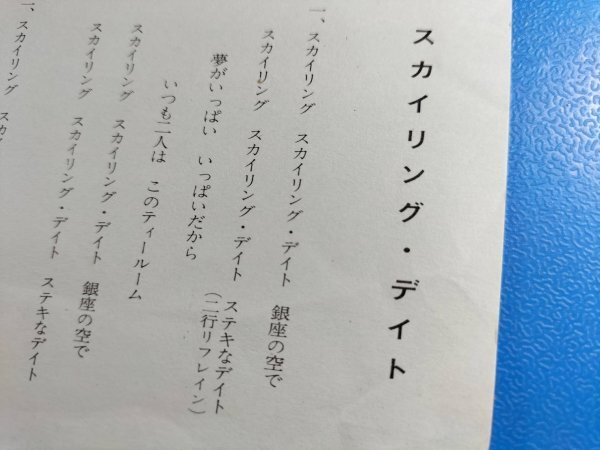 スカイリング・デイト
一、スカイリング スカイリング・デイト 銀座の空で
スカイリング スカイリング・デイト ステキなデイト
(二行リフレイン)
夢がいっぱい いっぱいだから
いつも二人は このティールーム
スカイリング スカイリング・デイト 銀座の空で
スカイリング スカイリング・デイト ステキなデイト
スカイリング